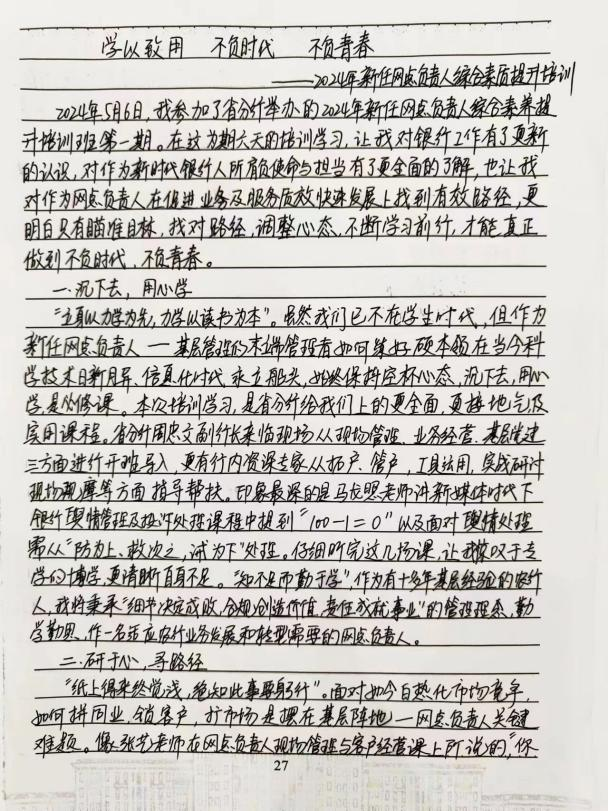 学以致用 不负时代 不负青春
——2024年新任网点负责人综合素质提升培训
2024年5月6日,我参加了省分行举办的2024年新任网点负责人综合素养提
升培训班第一期。在这为期六天的培训学习,让我对银行工作有了更新
的认识,对作为新时代银行人所肩负使命与担当有了更全面的了解,也让我
对作为网点负责人在促进业务及服务质效快速发展上找到有效路径,更
明白只有瞄准目标,找对路径,调整心态,不断学习前行,才能真正
做到不负时代,不负青春。
一.沉下去,用心学
“立身以力学为先,力学以读书为本”。虽然我们已不在学生时代,但作为
新任网点负责人——基层管理的本端管理者,如何练好硬本领在当今科
学技术日新月异、信息化时代,永立船头,始终保持空杯心态,沉下去,用心
学是必修课。本次培训学习,是省分行给我们上的更全面,更接地气及
实用课程。省分行周忠文副行长来临现场从现场管理、业务经营、基层党建
三方面进行开班导入,更有行内资深专家从拓户、管户,工具运用,实战研讨
现场观摩等方面指导帮扶。印象最深的是马老师讲新媒体时代下
银行舆情管理及投诉处理课程中提到“100-1=0”以及面对舆情处理
需从“防为上、救次之,诫为下”处理。仔细听完这几场课,让我叹于专
学的博学,更清晰自身不足。“知不足而勤于学”,作为有十多年基层经验的农行
人,我将秉承“细节决定成败,合规创造价值,责任成就事业”的管理理念,勤
学勤思,作一名适应农行业务发展和转型需要的网点负责人。
二.研于心,寻路径
“纸上得来终觉浅,绝知此事要躬行”。面对如今白热化市场竞争,
如何拼同业,锁客户,扩市场是摆在基层阵地——网点负责人关键
难题。像张艺老师在网点负责人现场管理与客户经营课上所说的,“你
27